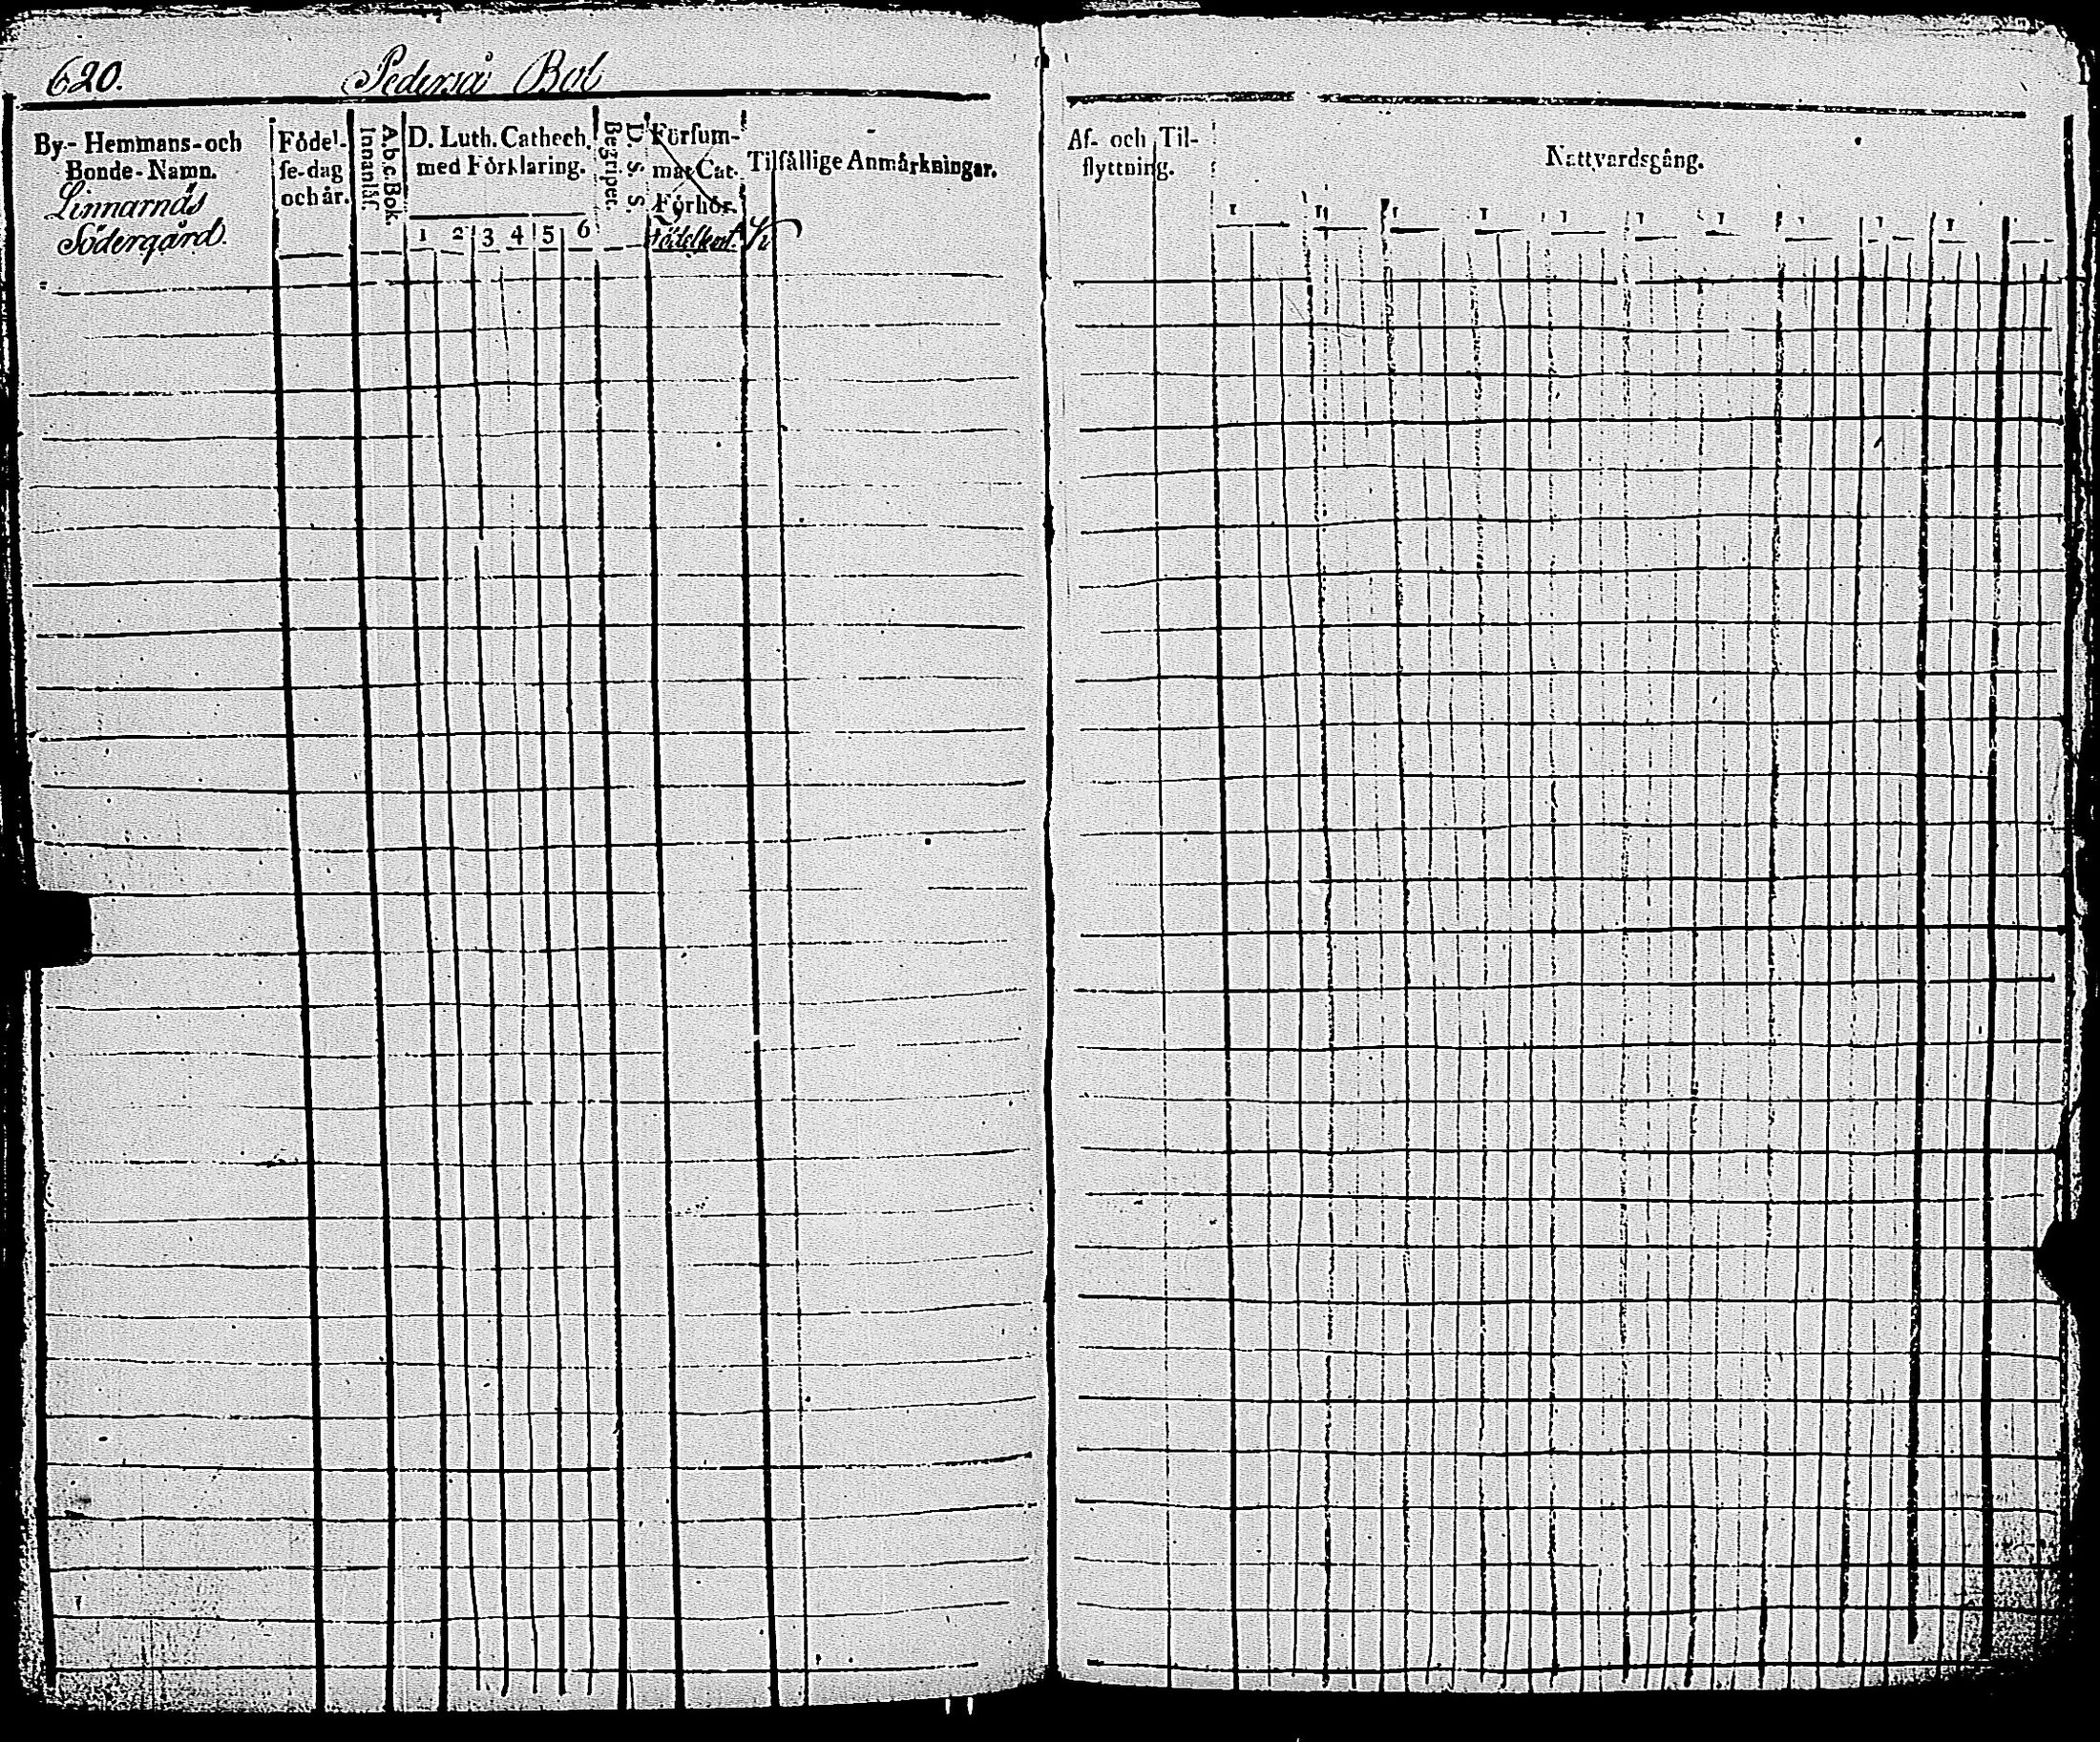 620. Pederså Bol
By- Hemmans- och
Bonde- Namn.
Linnarnäs
Södergård.
Födel-
se-dag
och år.
A.b.c. Bok.
Innanläs.
D. Luth. Cathech.
med Förklaring.
1 2 3 4 5 6
D. S. S.
Begripet.
Försum-
mat Cat.
Förhör.
Tilfällige Anmärkningar.
Af- och Til-
flyttning.
Nattvardsgång.